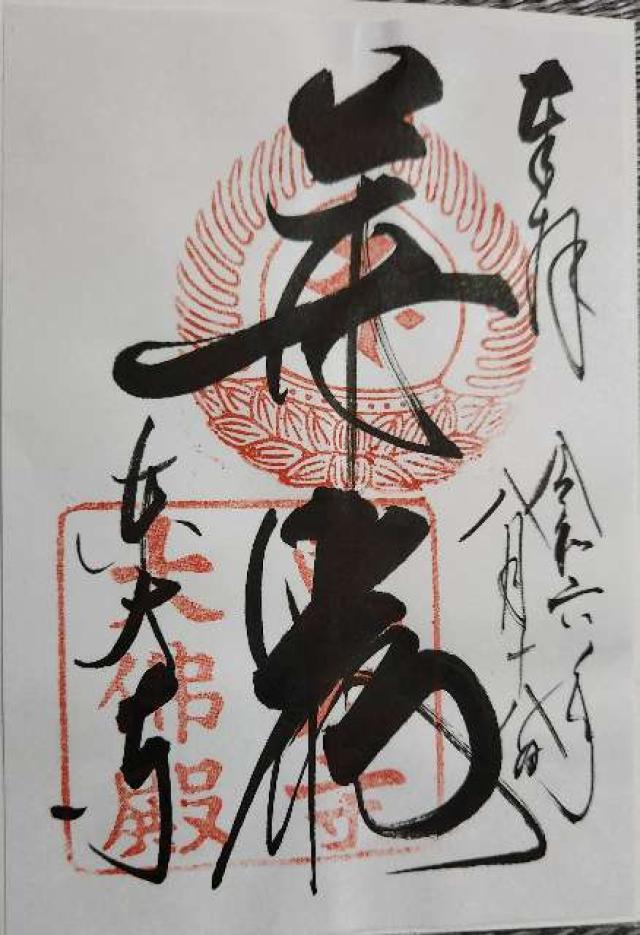 奉拝
令和六年
八月十八日
華厳
東大寺
大佛殿